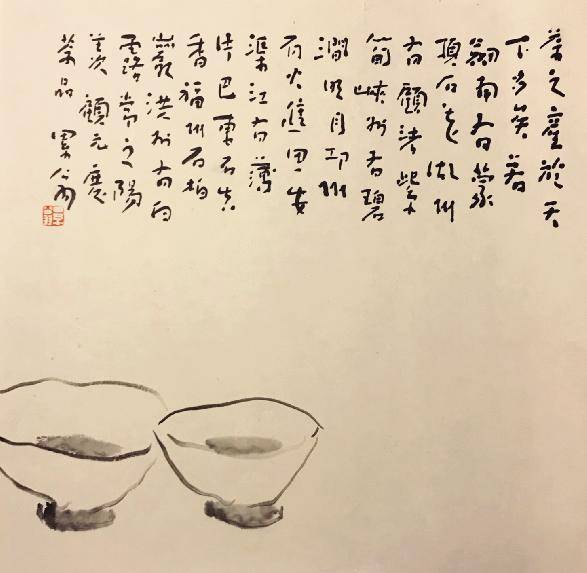 茶之產於天
下多矣若
劍南有蒙
頂石花湖州
有顧渚紫
筍峽州有碧
澗明月邛州
有火思安
渠江有薄
片巴東有真
香福州有柏
巖洪州有白
露常之陽
羨次顧元慶
茶品